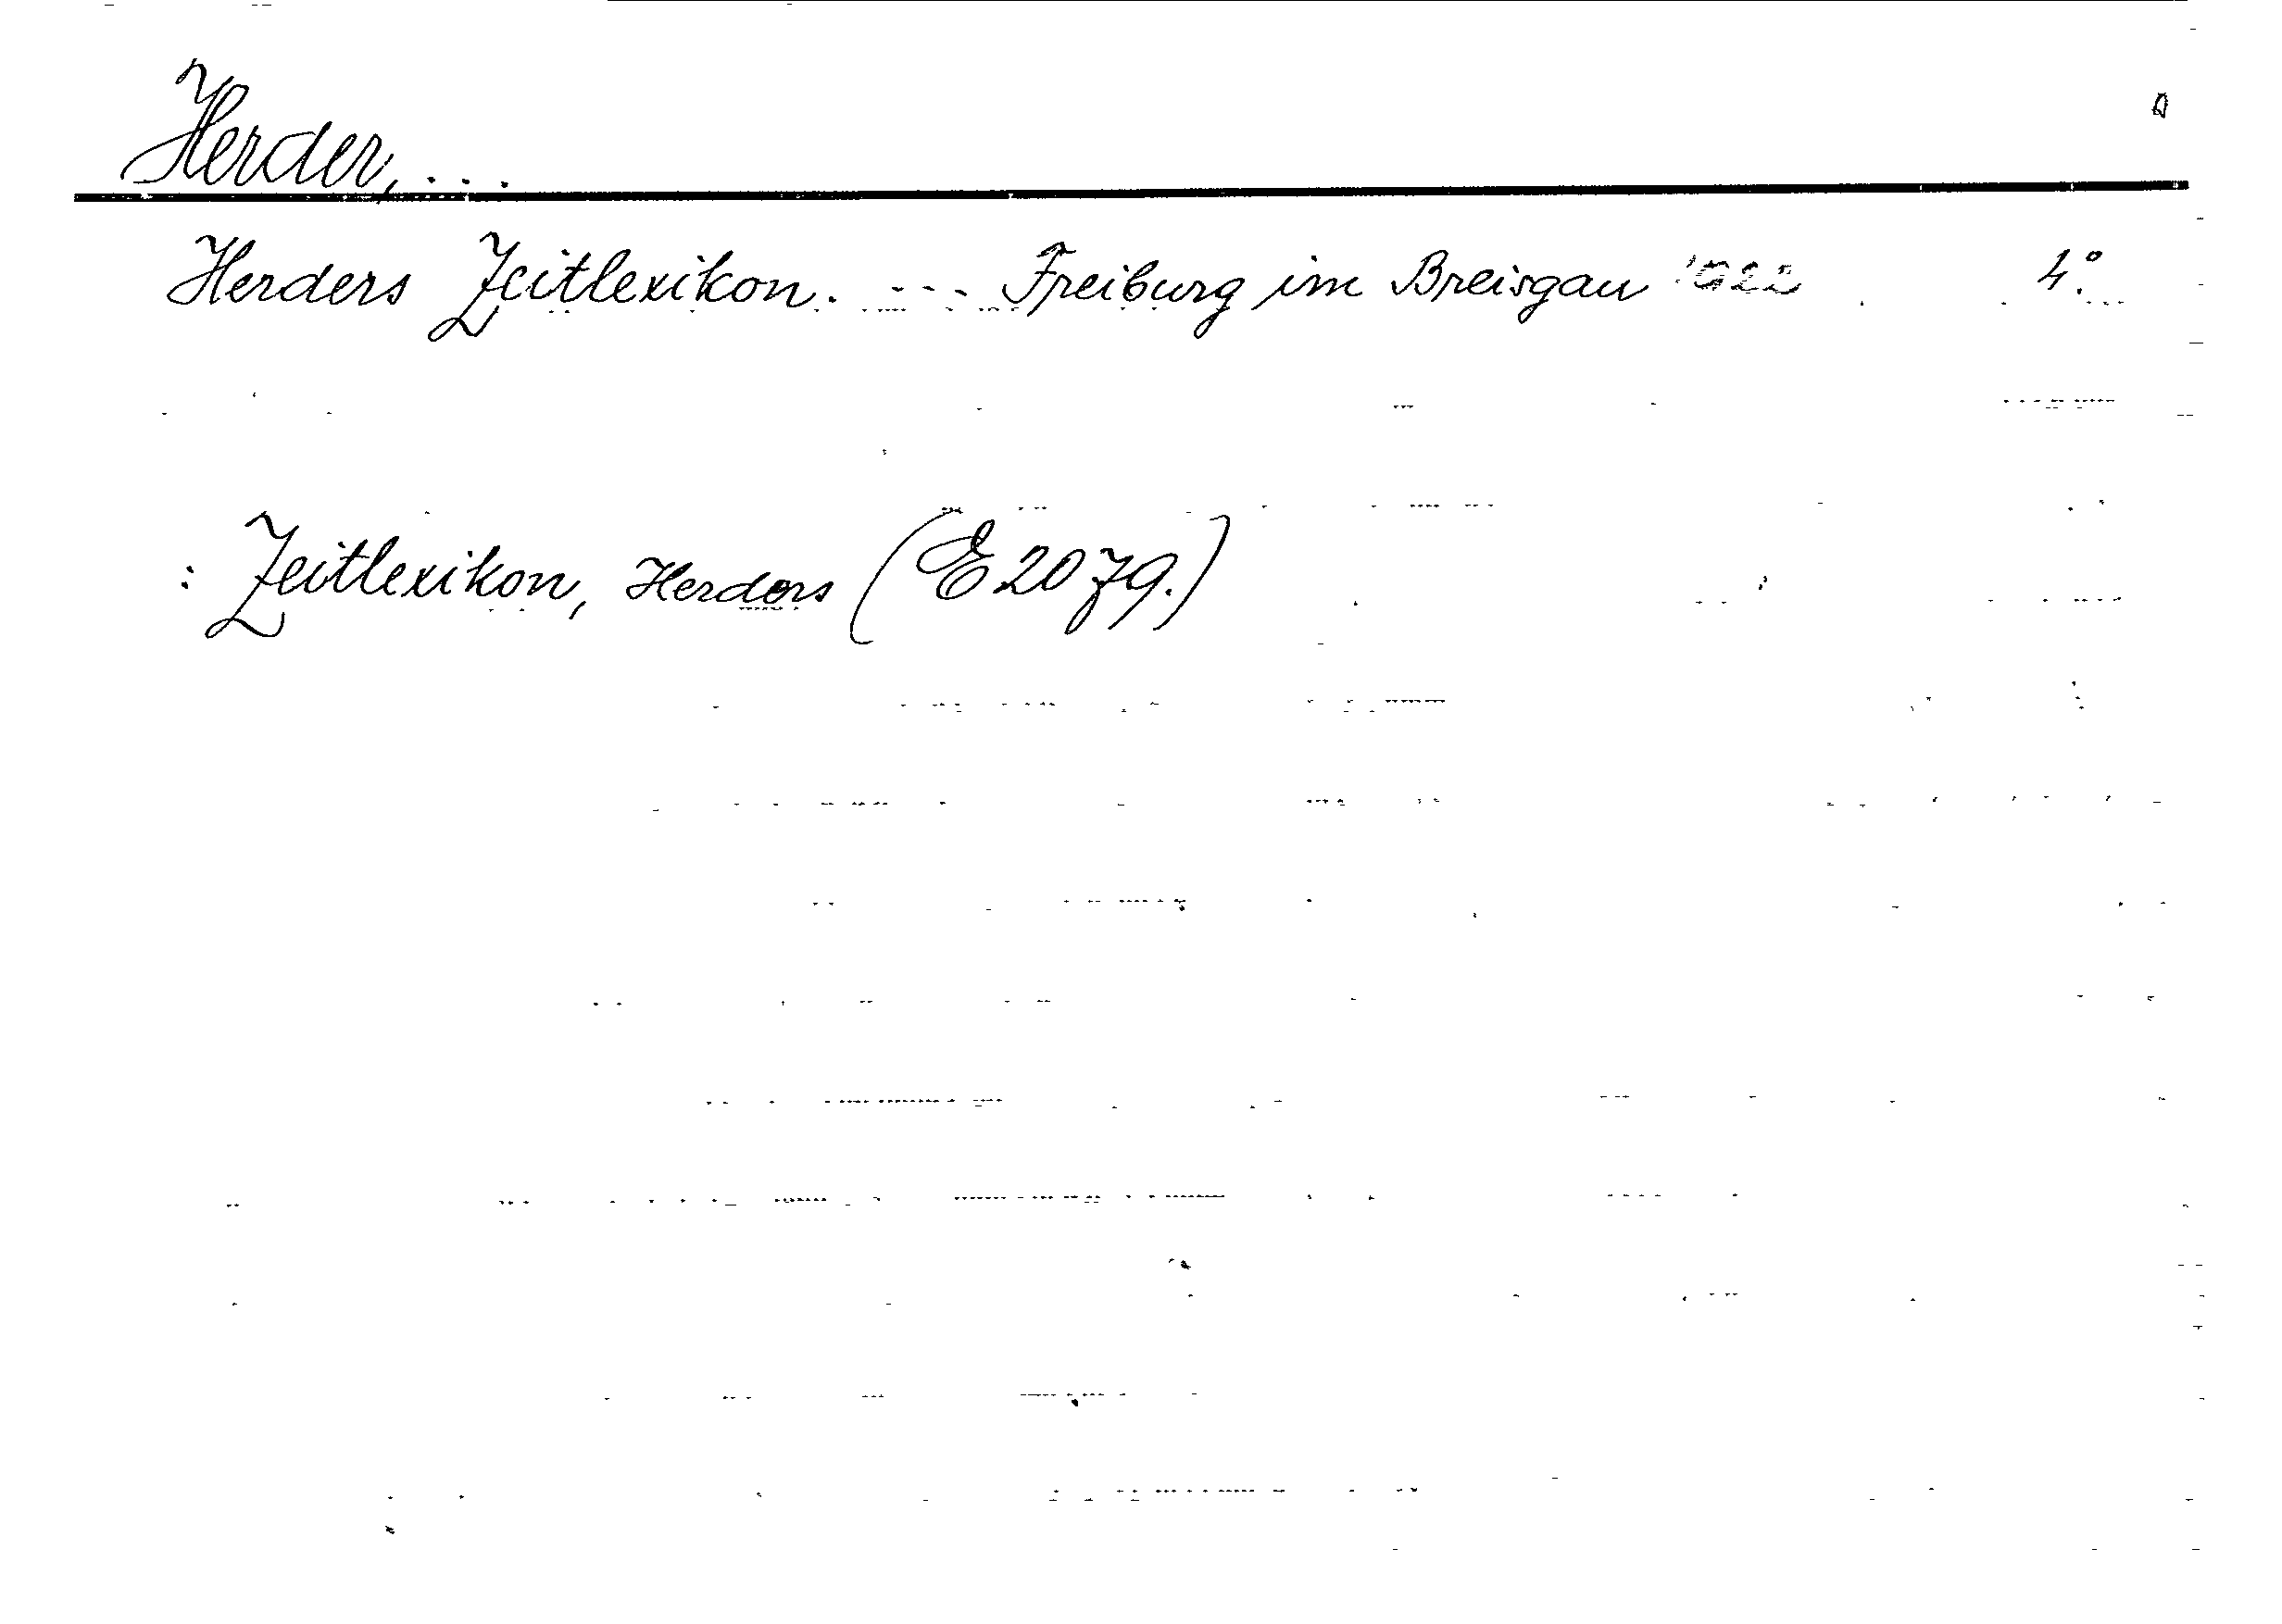 Herder, ...
Herders Zeitlexikon. --- Freiburg im Breisgau 1922 4°.
: Zeitlexikon, Herders (E 2079.)